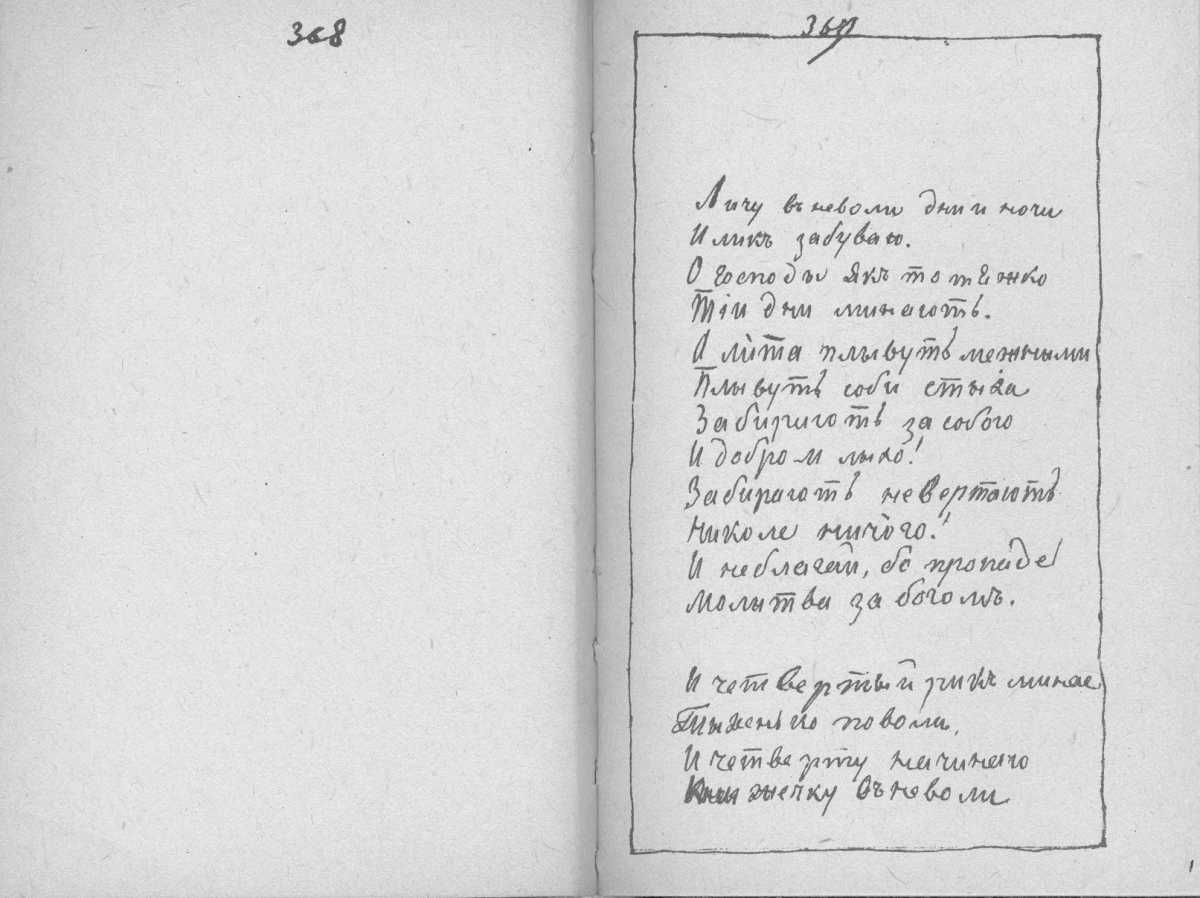 368
Личу въ неволи дни и ночи
И ликъ забуваю.
О господы якъ то тяжко
Тіи дни минають.
А лита плывуть межъ ными
Плывуть соби стыха
Забирають за собою
И добро и лыхо!
Забирають невертають
Николе ничого!
И неблагай, бо пропаде
Молытва за богомъ.
И четвертый рикъ минае
Тыхенько поволи,
И четверту начинаю
Книжечку въ неволи